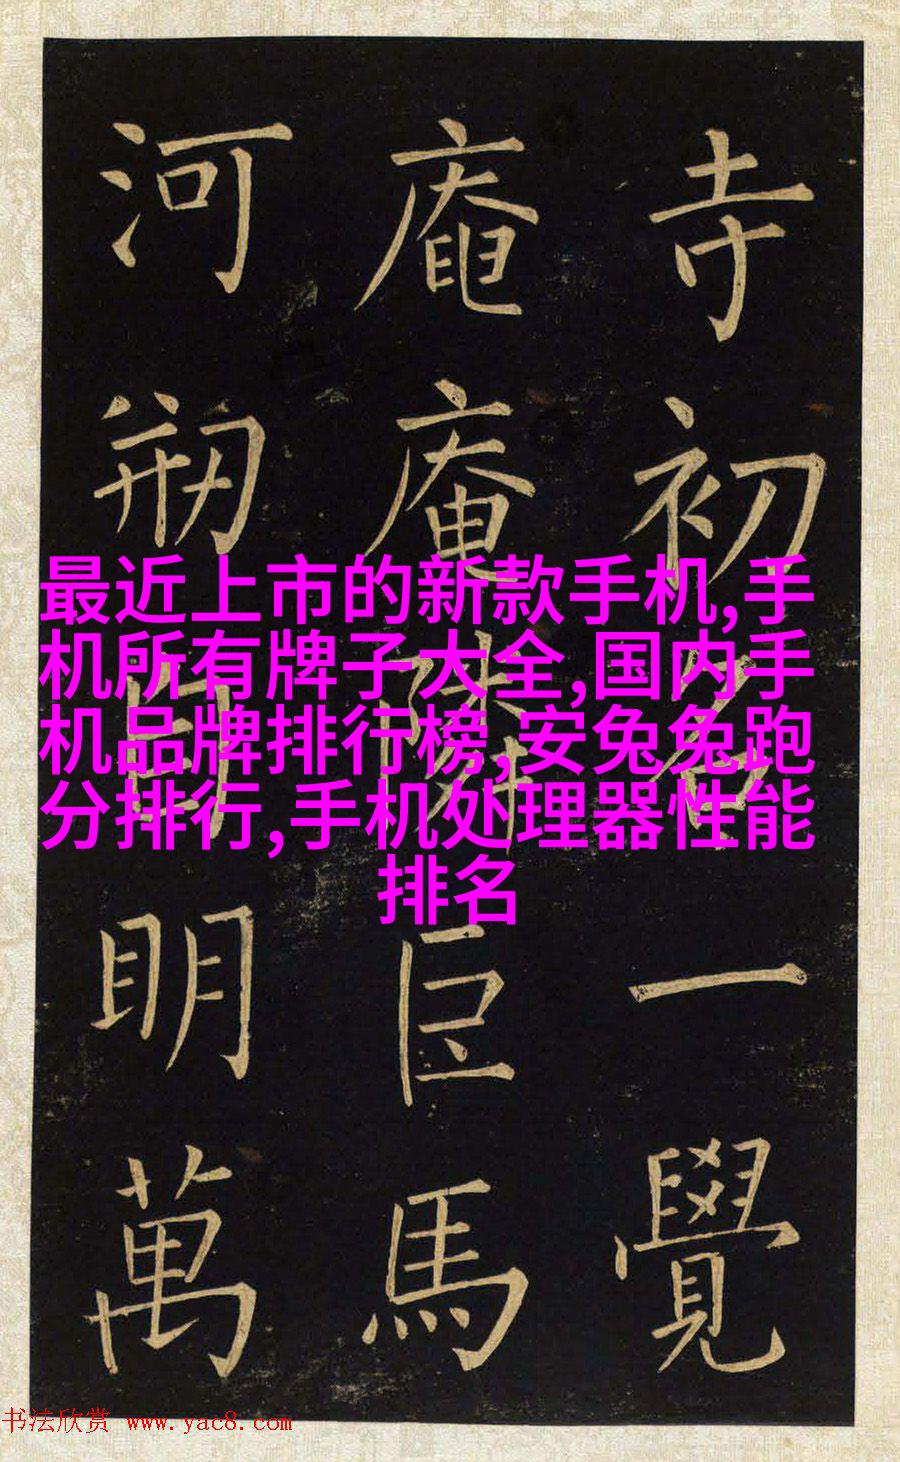 寺初名一覺
庵庵臣馬
河剏自明萬
最近上市的新款手机,手
机所有牌子大全,国内手
机品牌排行榜,安兔兔跑
分排行,手机处理器性能
排名
书法欣赏 www.yac8.com